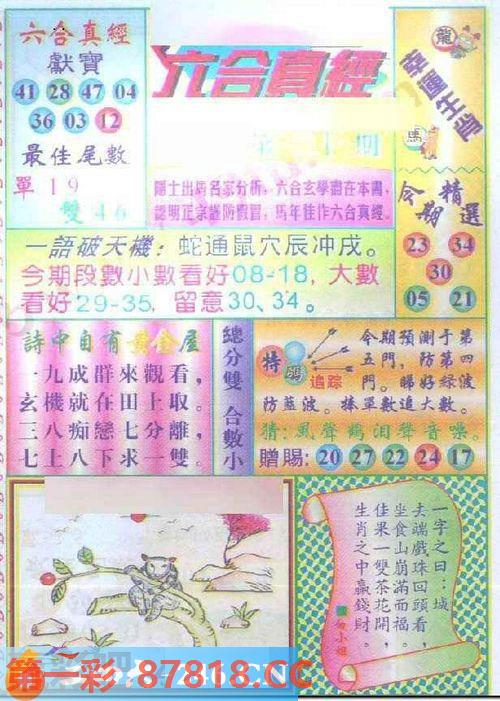 六合真經
獻寶
41 28 47 04
36 03 12
最佳尾數
單19
雙46
六合真經
期
隱士出馬名家分析,六合玄學盡在本圖,
認明正宗謹防假冒,馬年佳作六合真經。
龍
幸運生肖
馬
今期精選
23 34
30
05 21
一語破天機:蛇通鼠穴辰冲戌。
今期段數小數看好08-18,大數
看好29-35,留意30、34。
詩中自有黃金屋
一九成群來觀看,
玄機就在田上取。
三八痴戀七分離,
七上八下求一雙。
總分雙 合數小
特碼
追踪
今期預測于第
五門,防第四
門。睇好綠波
防藍波。捧單數追大數。
猜:風聲鶴泪聲音噪。
贈賜:20 27 22 24 17
一字之曰:城
夫端戲珠回頭看,
坐食山崩滿面福。
佳果一雙茶花開,
生肖之中贏錢財。
白小姐
第一彩 87818.CC
246.CN